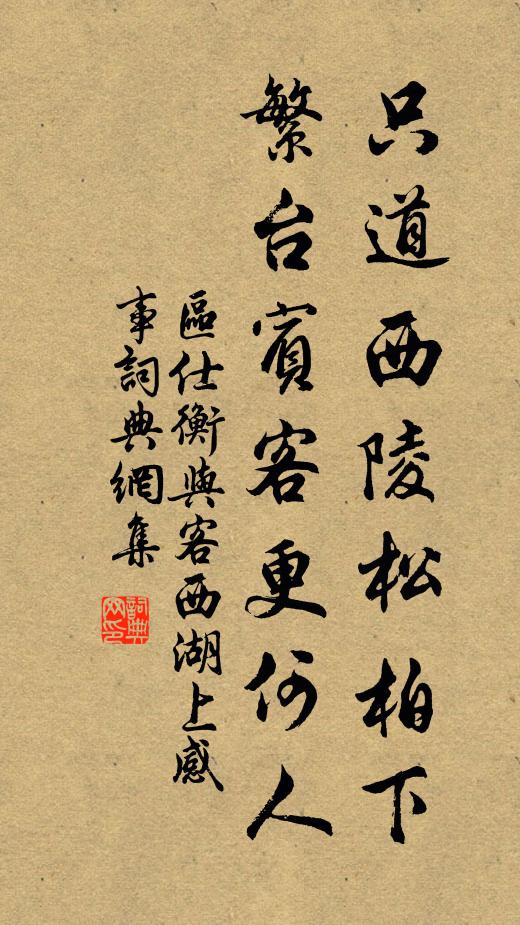 只道西陵松柏下
繁台賓客更何人
區仕衡與客西湖上感
事詞典網集
詞典网印